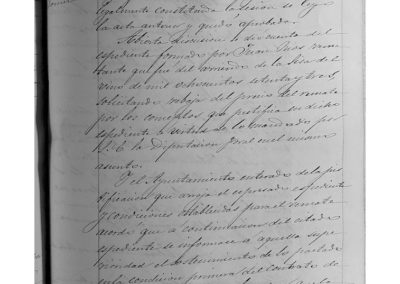 legalmente constituida la sesion se leyó
la acta anterior y quedó aprobada.
Abierta discusion se dio cuenta del
espediente formado por Juan rema
tante que fué del arriendo de la Sisa del
vino de mil ochocientos setenta y tres
solicitando rebaja del precio del remate
por los conceptos que justifica en dicho
espediente a virtud de lo mandado por
S.E. la Diputacion Prval en el mismo
asunto.
Y el Ayuntamiento enterado de la jus
tificacion que arroja el espresado espediente
y condiciones establecidas para el remate
acordo que a continuacion del citado
espediente se informase a aquella supe
rioridad el de lo pactado
en la condicion primera del contrato de